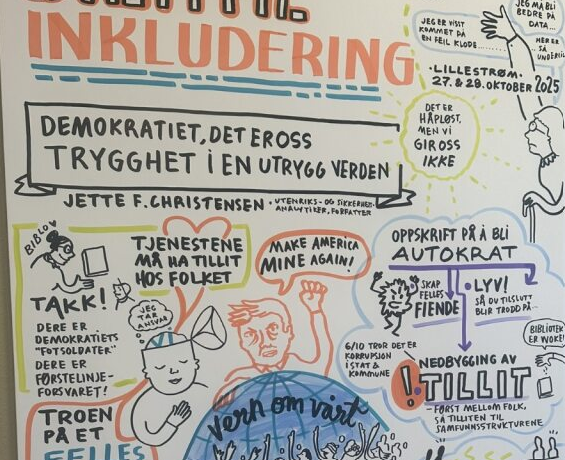 INKLUDERING
JEG ER VISST
KOMMET PÅ
EN FEIL KLODE........
JEG MÅ BLI
BEDRE PÅ
DATA...
HER ER
SÅ
• LILLESTRØM •
27. & 28. OKTOBER 2025
DET ER
HÅPLØST,
MEN VI
GIR OSS
IKKE
DEMOKRATIET, DET ER OSS
TRYGGHET I EN UTRYGG VERDEN
JETTE F. CHRISTENSEN • UTENRIKS- OG SIKKERHETS-
ANALYTIKER, FORFATTER
BIBLO
TAKK!
DERE ER
DEMOKRATIETS
"FOTSOLDATER"
DERE ER
FØRSTELINJE-
FORSVARET!
TJENESTENE
MÅ HA TILLIT
HOS FOLKET
JEG
TAR
ANSVAR
MAKE AMERICA
MINE AGAIN!
OPPSKRIFT PÅ Å BLI
AUTOKRAT
SKAP
FELLES
FIENDE
• LYV!
SÅ DU TIL SLUTT
BLIR TRODD PÅ...
6/10 TROR DET ER
KORRUPSJON
I STAT &
KOMMUNE
NEDBYGGING AV
! TILLIT
- FØRST MELLOM FOLK,
SÅ TILLITEN TIL
SAMFUNNSSTRUKTURENE
BIBLIOTEK
ER WOKE!
TROEN
PÅ ET
FELLES
Vern om vårt